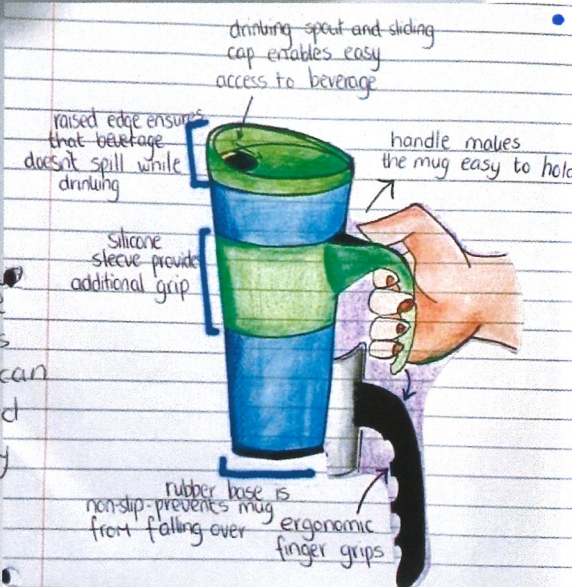 drinking spout and sliding
cap enables easy
access to beverage
raised edge ensures
that beverage
doesn't spill while
drinking
handle makes
the mug easy to hold
silicone
sleeve provide
additional grip
s
can
d
y
rubber base is
non-slip-prevents mug
from falling over
ergonomic
finger grips